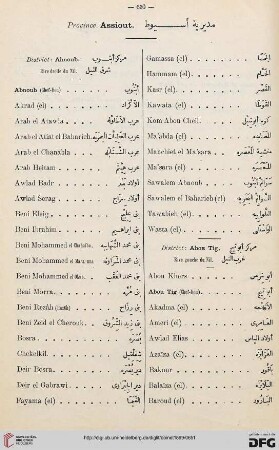 — 620 —
Province Assiout. مديرية أسيوط
District: Abnoub. مركز أبنوب
Rive droite du Nil. شرق النيل
Abnoub (Chef-lieu) أبنوب
Akrad (el) الأكراد
Arab el Atawla عرب الأطاولة
Arab el Chanabla عرب الشنابلة
Arab Heitam
Awlad Badr أولاد بدر
Awlad Serag أولاد سراج
Beni Eleig
Beni Ibrahim بني إبراهيم
Beni Mohammed
Beni Mohammed
Beni Mohammed
Beni Morra بني مرة
Beni Rezah
Beni Zeid el Cherouk
Bosra بصرة
Chekelkil شقلقيل
Deir Bosra دير بصرة
Deir el Gabrawi دير الجبراوي
Fayama (el) الفيما
Gamassa (el)
Hammam (el) الحمام
Kasr (el) القصر
Kawata (el) القوطا
Kom Abou Cheil كوم أبو شيل
Ma'abda (el) المعابدة
Manchiet el Ma'sara منشية المعصرة
Ma'sara (el) المعصرة
Sawalem Abnoub سوالم أبنوب
Sawalem el Baharieh (el) السوالم البحرية
Tawabieh (el) الطوابية
Wasta (el) الواسطة
District: Abou Tig. مركز أبو تيج
Rive gauche du Nil. غرب النيل
Abou Khers أبو خرص
Abou Tig (Chef-lieu) أبو تيج
Akadma (el) الأقادمة
Ameri (el) العامري
Awlad Elias أولاد إلياس
Azaïza (el) العزايزة
Bakour باقور
Balaïza (el) البلايزة
Baroud (el) البارود
UNIVERSITÄTS-BIBLIOTHEK HEIDELBERG
DFG